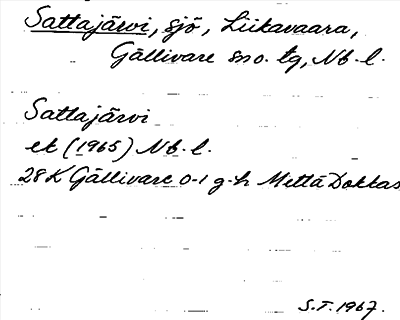 Sattajärvi, sjö, Liikavaara,
Gällivare sn o. tg, Nb. l.
Sattajärvi
ek (1965) Nb. l.
28 K Gällivare 0-1 g-h Metta Dokkas
S.T. 1967.